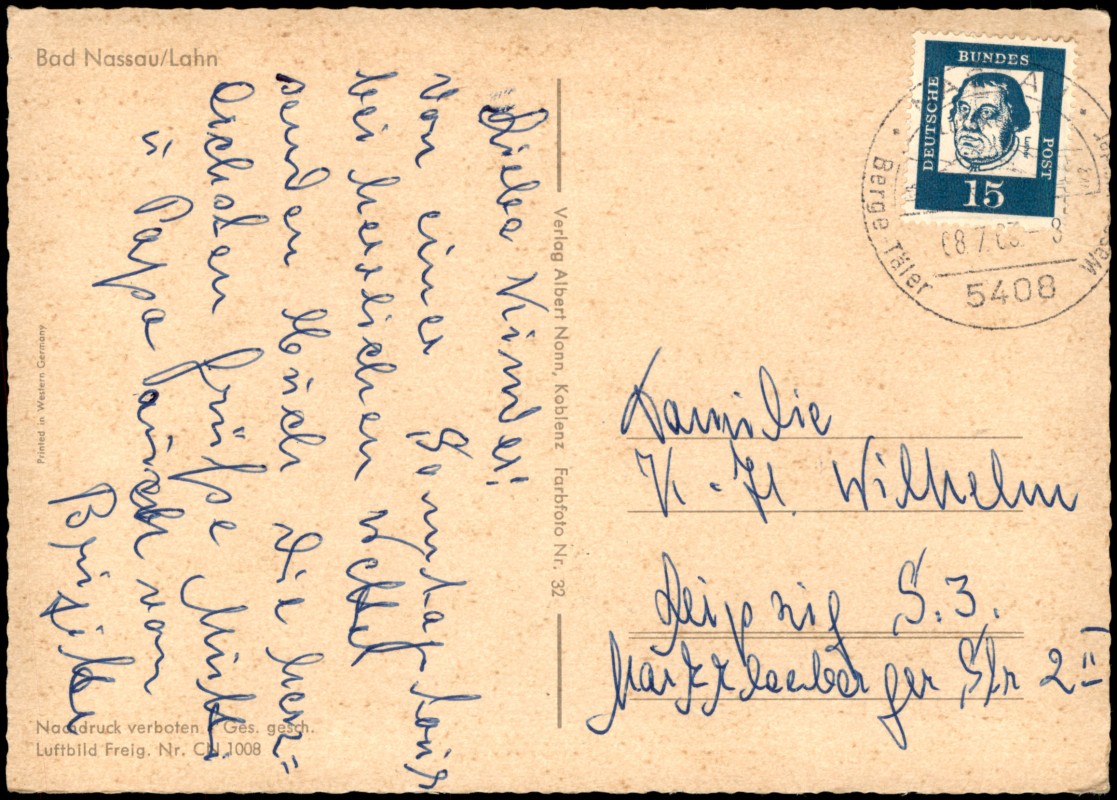 Bad Nassau/Lahn
Liebe Kinder!
von einer Sonntagstour
bei herrlichen Wetter
senden Euch die herz=
lichsten Grüße Mutti
u Papa auch von
Brigitte
Printed in Western Germany
Nachdruck verboten Ges. gesch.
Luftbild Freig. Nr. CN 1008
Verlag Albert Nonn, Koblenz Farbfoto Nr. 32
DEUTSCHE
BUNDES
POST
15
08.7.63 - 8
5408
Berge Täler
Familie
K.-H. Wilhelm
Leipzig S.3.
Markkleeberger Str 2 II